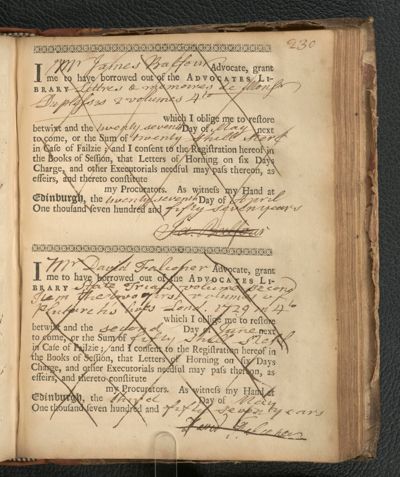 230
I Mr James Balfour Advocate, grant
me to have borrowed out of the ADVOCATES LI-
BRARY Lettres & memoires de Monsr
2 volumes 4to
which I oblige me to reſtore
betwixt and the twenty seventh Day of May next
to come, or the Sum of twenty Shill Sterl
in Caſe of Failzie; and I conſent to the Regiſtration hereof in
the Books of Seſſion, that Letters of Horning on ſix Days
Charge, and other Executorials needful may paſs thereon, as
effeirs, and thereto conſtitute
my Procurators. As witneſs my Hand at
Edinburgh, the twenty seventh Day of April
One thouſand ſeven hundred and fifty seven years
Ja. Balfour
I Mr David Falconer Advocate, grant
me to have borrowed out of the ADVOCATES LI-
BRARY State Trials volume second
Item the two first volumes of
Plutarchs lives Lond. 1729 in 4to
which I oblige me to reſtore
betwixt and the second Day of June next
to come, or the Sum of fifty Shill Sterl
in Caſe of Failzie; and I conſent to the Regiſtration hereof in
the Books of Seſſion, that Letters of Horning on ſix Days
Charge, and other Executorials needful may paſs thereon, as
effeirs, and thereto conſtitute
my Procurators. As witneſs my Hand at
Edinburgh, the third Day of May
One thouſand ſeven hundred and fifty seven years
David Falconer